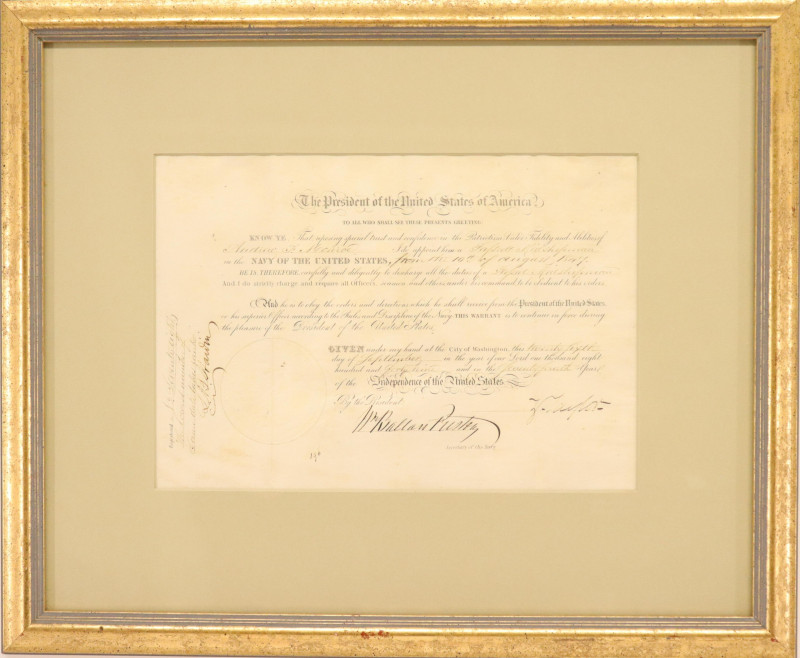 The President of the United States of America
TO ALL WHO SHALL SEE THESE PRESENTS GREETING:
KNOW YE, That reposing special trust and confidence in the Patriotism, Valor, Fidelity and Abilities of
I do appoint him a Passed Midshipman
in the NAVY OF THE UNITED STATES, from the 10th of August 1847
HE IS THEREFORE, carefully and diligently to discharge all the duties of a Passed Midshipman
And I do strictly charge and require all Officers, Seamen and others under his command to be obedient to his orders
And he is to obey the orders and directions which he shall receive from the President of the United States,
or his superior Officer according to the Rules and Discipline of the Navy. THIS WARRANT is to continue in force during
the pleasure of the President of the United States.
GIVEN under my hand at the City of Washington, this
day of September in the year of our Lord one thousand eight
hundred and and in the Seventy fourth Year
of the Independence of the United States.
By the President
Z. Taylor
Wm Ballard Preston
Secretary of the Navy